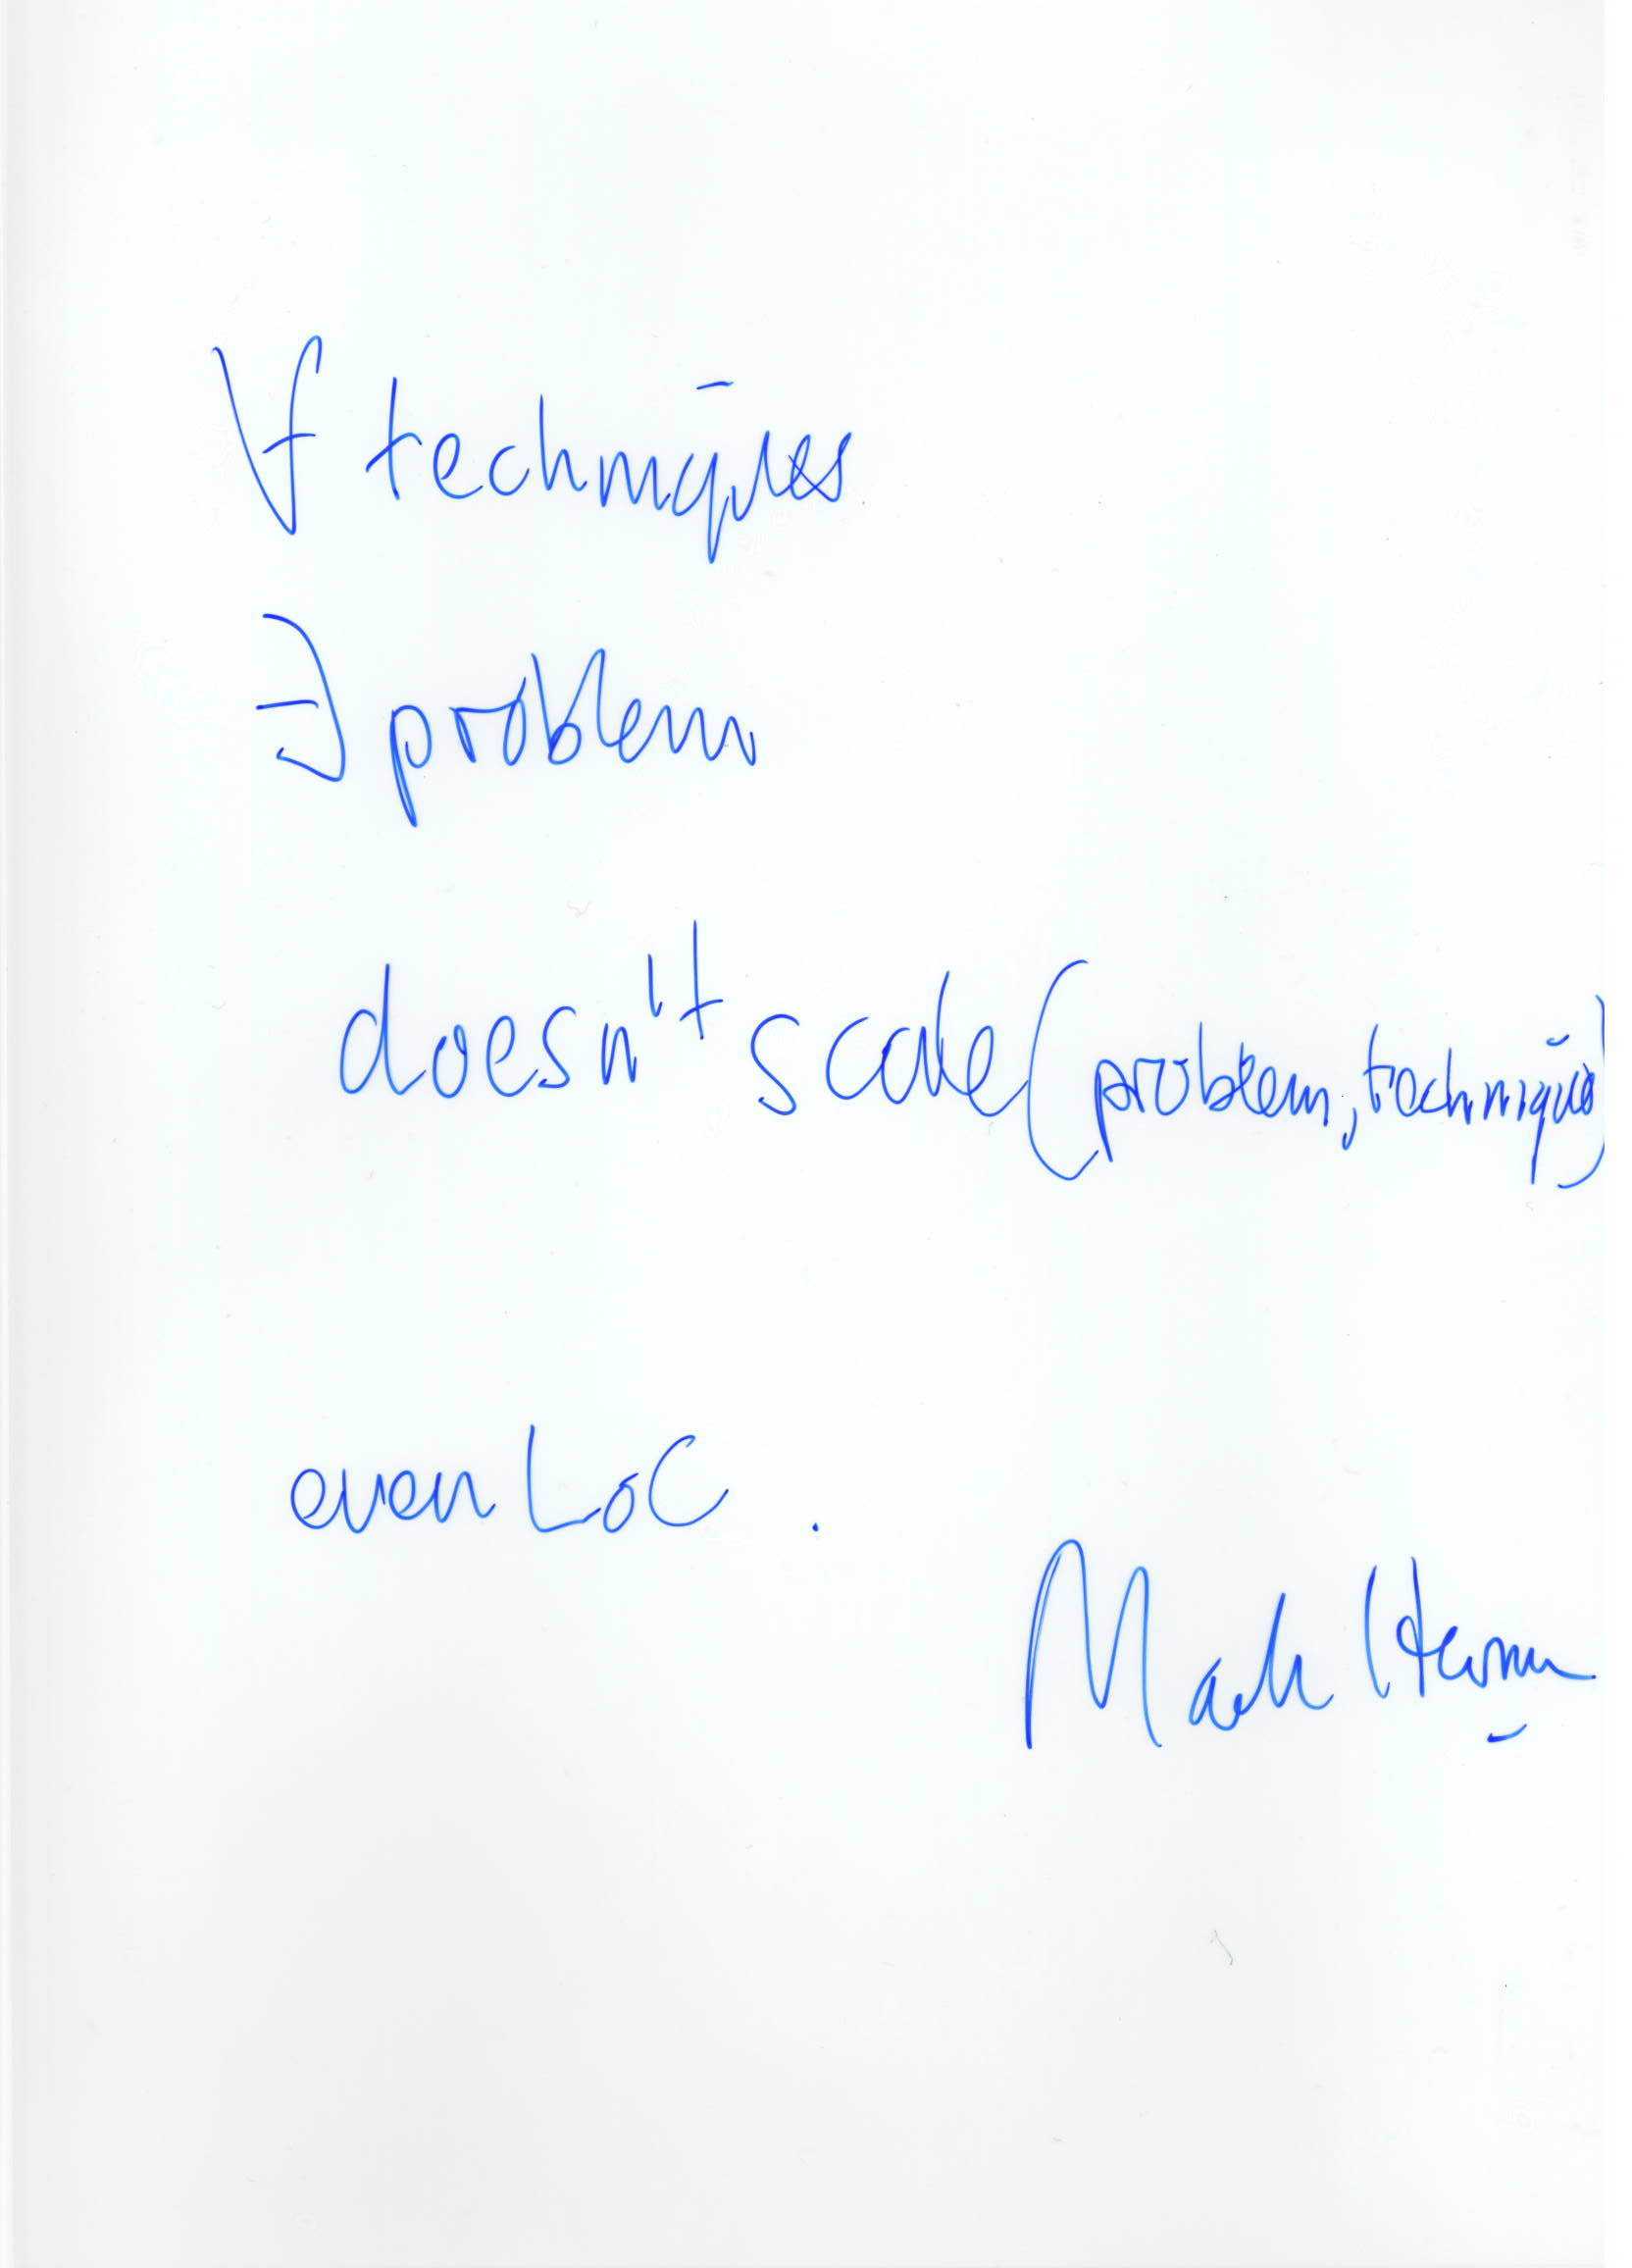 ∀ techniques
∃ problem
doesn't scale(problem, technique)
even LoC.